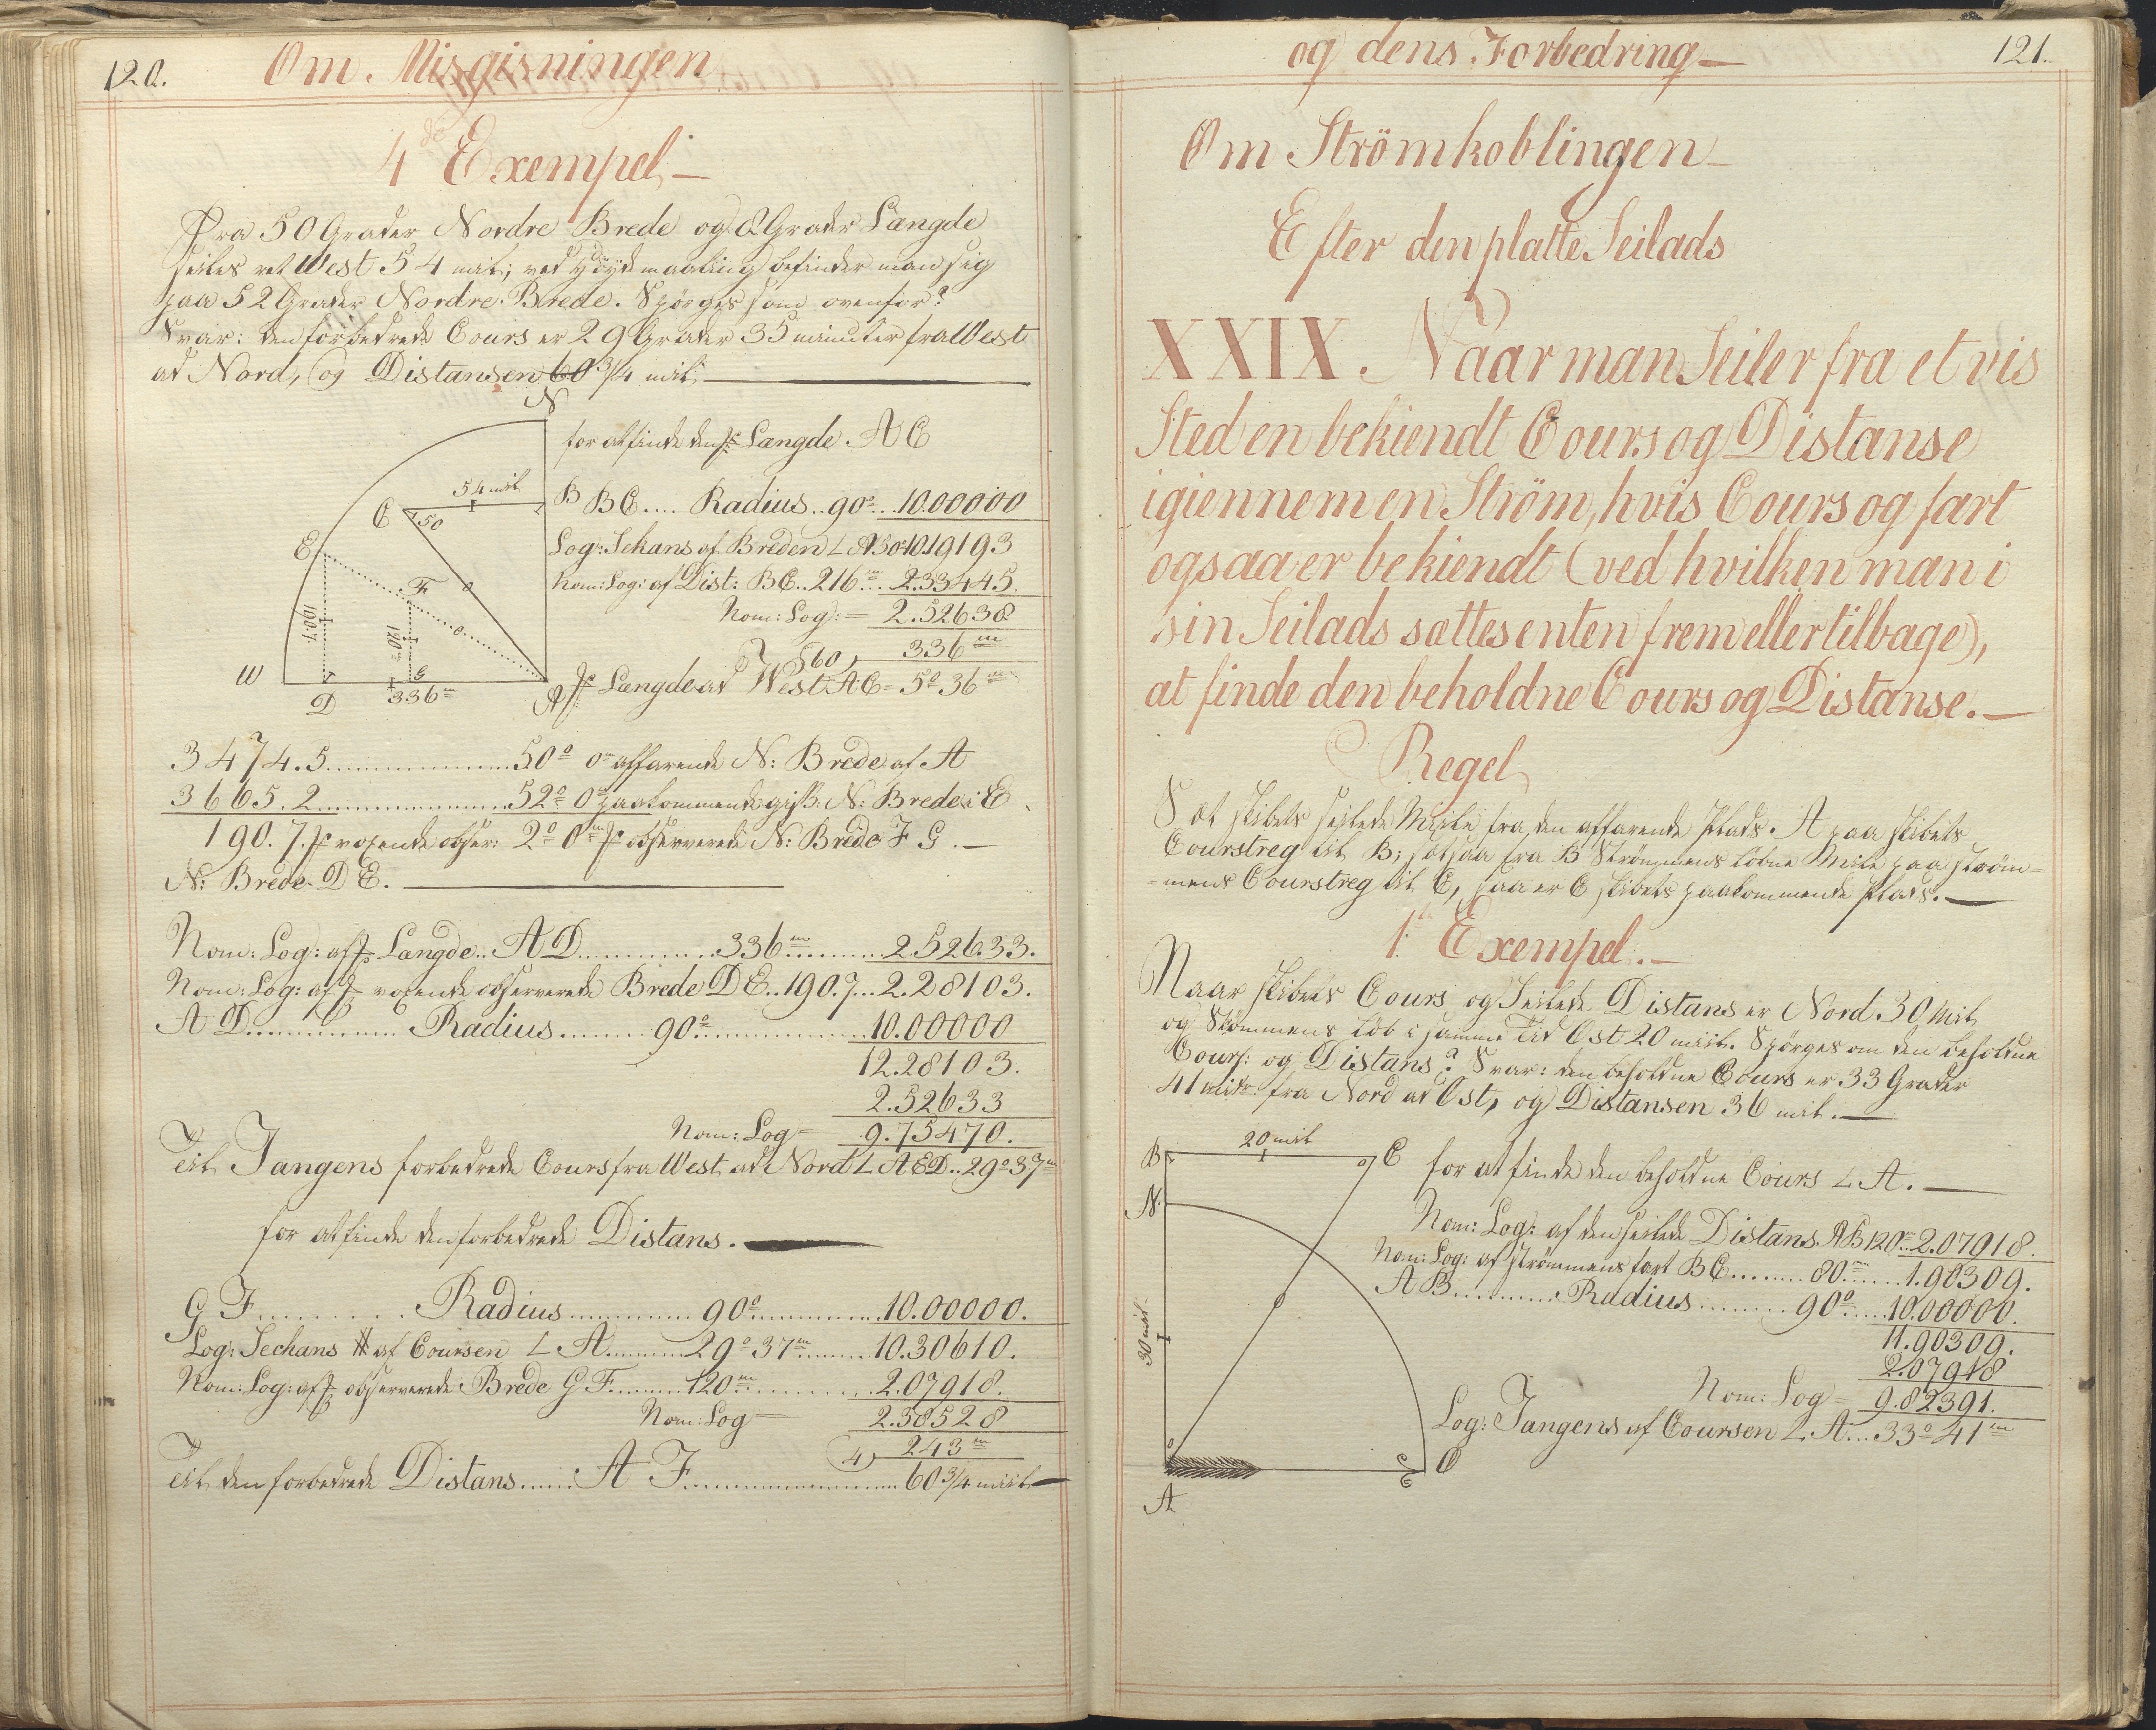 120.
Om Misgisningen
4de Exempel
Fra 50 Grader Nordre Brede og 8 Grader Længde
seiles ret West 54 miil; ved Höydemaaling befinder man sig
paa 52 Grader Nordre Brede. Spörges som ovenfor?
Svar: den forbedrede Cours er 29 Grader 35 minuter fra West
ad Nord, og Distansen 60 3/4 miil
N
for at finde den Længde AC
54 miil
B
BC.... Radius.. 90°... 10.00000
C
50
Log: Sekans af Breden ∠ A 50° 10.19193
E
Nom: Log: af Dist: BC.. 216m... 2.33445.
F
Nom: Log: = 2.52638
190.7.
120m
60) 336m
W
D
G
336m
A
Længde ad West AC = 5° 36m
3474.5..................50° 0m affarende N: Brede af A
3665.2..................52° 0m paakommende giss: N: Brede i E
190.7. voxende obser: 2° 0m observerede N: Brede F G.
N: Brede D E.
Nom: Log: af Længde.. A D............336m.........2.52633.
Nom: Log: af voxende observerede Brede D E..190.7...2.28103.
A D............... Radius........90°...............10.00000
12.28103.
2.52633
Nom: Log = 9.75470.
til Tangens forbedrede Cours fra West ad Nord ∠ A ED..29° 37m
for at finde den forbedrede Distans.
G F.......... Radius............90°............10.00000.
Log: Sechans af Coursen ∠ A.........29° 37m.......10.30610.
Nom: Log: af observerede Brede G F.........120m............2.07918.
Nom: Log = 2.38528
4) 243m
til den forbedrede Distans......A F....................60 3/4 miil
og dens Forbedring
121.
Om Strömkoblingen
Efter den platte Seilads
XXIX. Naar man Seiler fra et vis
Sted en bekiendt Cours og Distanse
igiennem en Ström, hvis Cours og fart
ogsaa er bekiendt (ved hvilken man i
sin Seilads sættes enten frem eller tilbage),
at finde den beholdne Cours og Distanse.
Regel
Sæt skibets seilede Miile fra den affarende Plads A paa skibets
Courstreg til B; sæt saa fra B Strömmens lobne Mile paa ström-
=mens Courstreg til C, saa er C skibets paakommende Plads.
1te Exempel.
Naar skibets Cours og Seilede Distans er Nord 30 Miil
og Strömmens lob i samme tid Ost 20 miil. Spörges om den beholdne
Cours: og Distans? Svar: den beholdne Cours er 33 Grader
41 min: fra Nord ad Ost, og Distansen 36 miil.
B
20 miil
C
for at finde den beholdne Cours ∠ A.
N
Nom: Log: af den seilede Distans. AB 120m..2.07918.
Nom: Log: af strömmens fart BC........80m......1.90309.
A B..........Radius........90°.....10.00000.
11.90309.
30 miil
2.07918
Nom: Log = 9.82391.
Log: Tangens af Coursen ∠ A...33° 41m
O
A